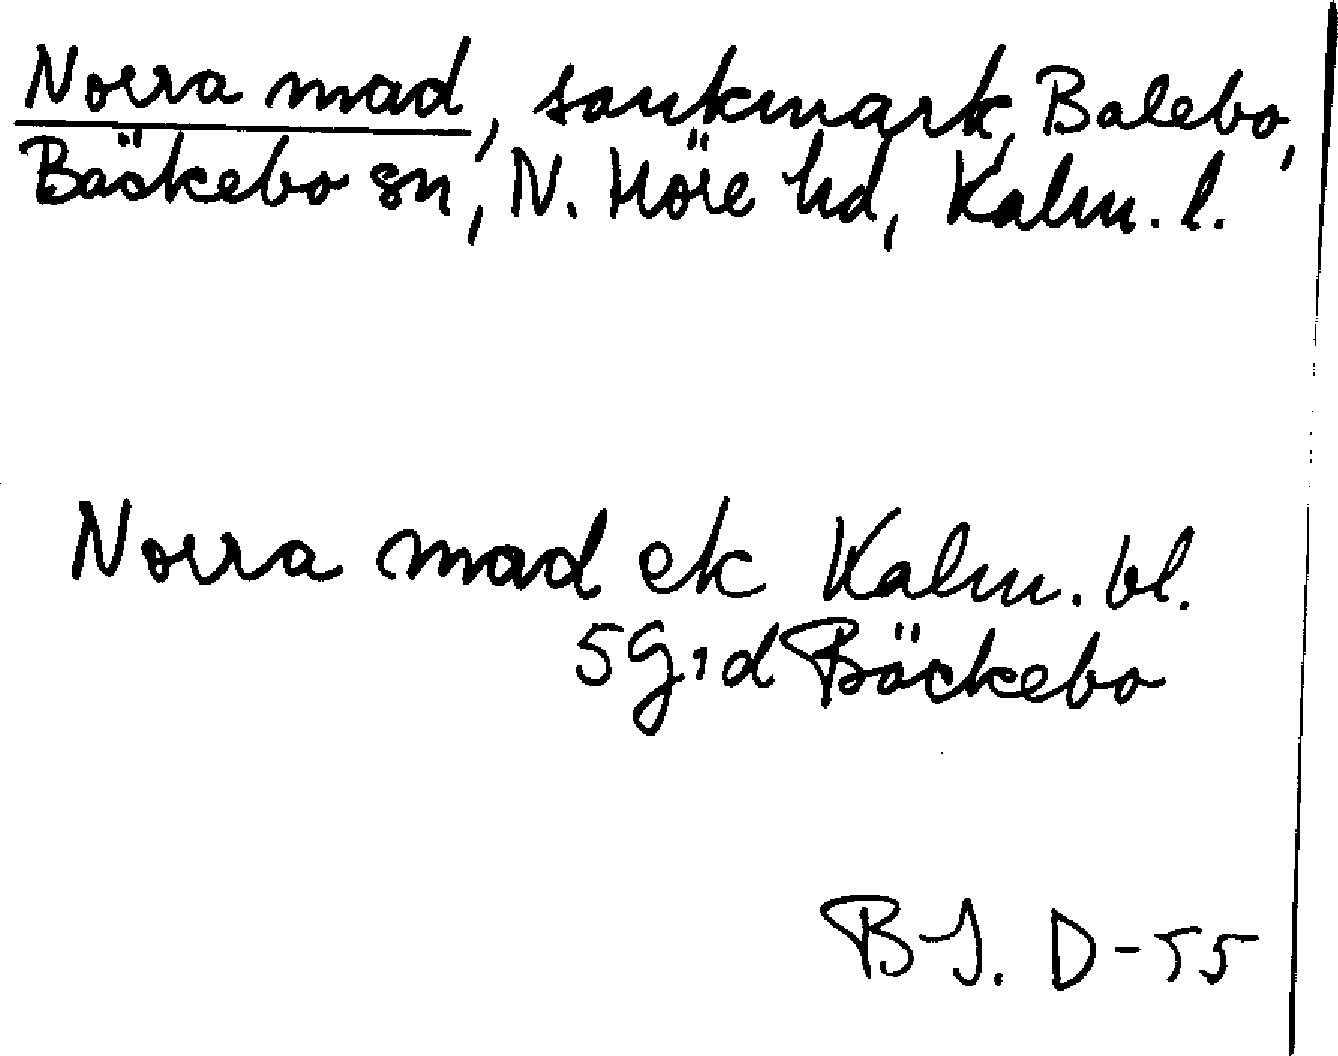 Norra mad, sankmark, Balebo,
Bäckebo sn, N. Möre hd, Kalm. l.
Norra mad ek Kalm. bl.
5G:d Bäckebo
B-J. D-55